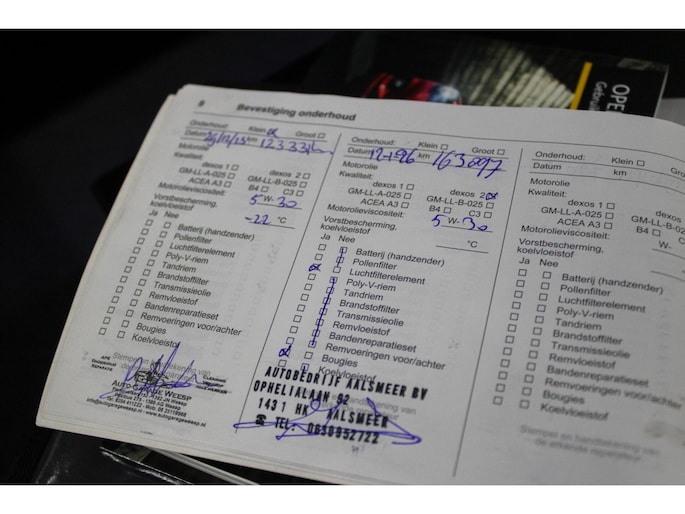 OPE
Gebrui
8 Bevestiging onderhoud
Onderhoud: Klein Groot
Datum km 123.331
Motorolie
Kwaliteit:
dexos 1 dexos 2
GM-LL-A-025 GM-LL-B-025
ACEA A3 B4 C3
Motorolieviscositeit:
5 W- 30
Vorstbescherming,
koelvloeistof -22 °C
Ja Nee
Batterij (handzender)
Pollenfilter
Luchtfilterelement
Poly-V-riem
Tandriem
Brandstoffilter
Transmissieolie
Remvloeistof
Bandenreparatieset
Remvoeringen voor/achter
Bougies
Koelvloeistof
Stempel en handtekening van
AUTO GARAGE WEESP
info@autogarageweesp.nl www.autogarageweesp.nl
Onderhoud: Klein Groot
Datum km 163097
Motorolie
Kwaliteit:
dexos 1 dexos 2
GM-LL-A-025 GM-LL-B-025
ACEA A3 B4 C3
Motorolieviscositeit:
5 W- 30
Vorstbescherming,
koelvloeistof °C
Ja Nee
Batterij (handzender)
Pollenfilter
Luchtfilterelement
Poly-V-riem
Tandriem
Brandstoffilter
Transmissieolie
Remvloeistof
Bandenreparatieset
Remvoeringen voor/achter
Bougies
Koelvloeistof
AUTOBEDRIJF AALSMEER BV
OPHELIALAAN 92
1431 HK AALSMEER
TEL. 0630952722
Onderhoud: Klein Groot
Datum km
Motorolie
Kwaliteit:
dexos 1 dexos 2
GM-LL-A-025 GM-LL-B-025
ACEA A3 B4
Motorolieviscositeit:
W-
Vorstbescherming,
koelvloeistof
Ja Nee
Batterij (handzender)
Pollenfilter
Luchtfilterelement
Poly-V-riem
Tandriem
Brandstoffilter
Transmissieolie
Remvloeistof
Bandenreparatieset
Remvoeringen voor/achter
Bougies
Koelvloeistof
Stempel en handtekening van
de erkende reparateur